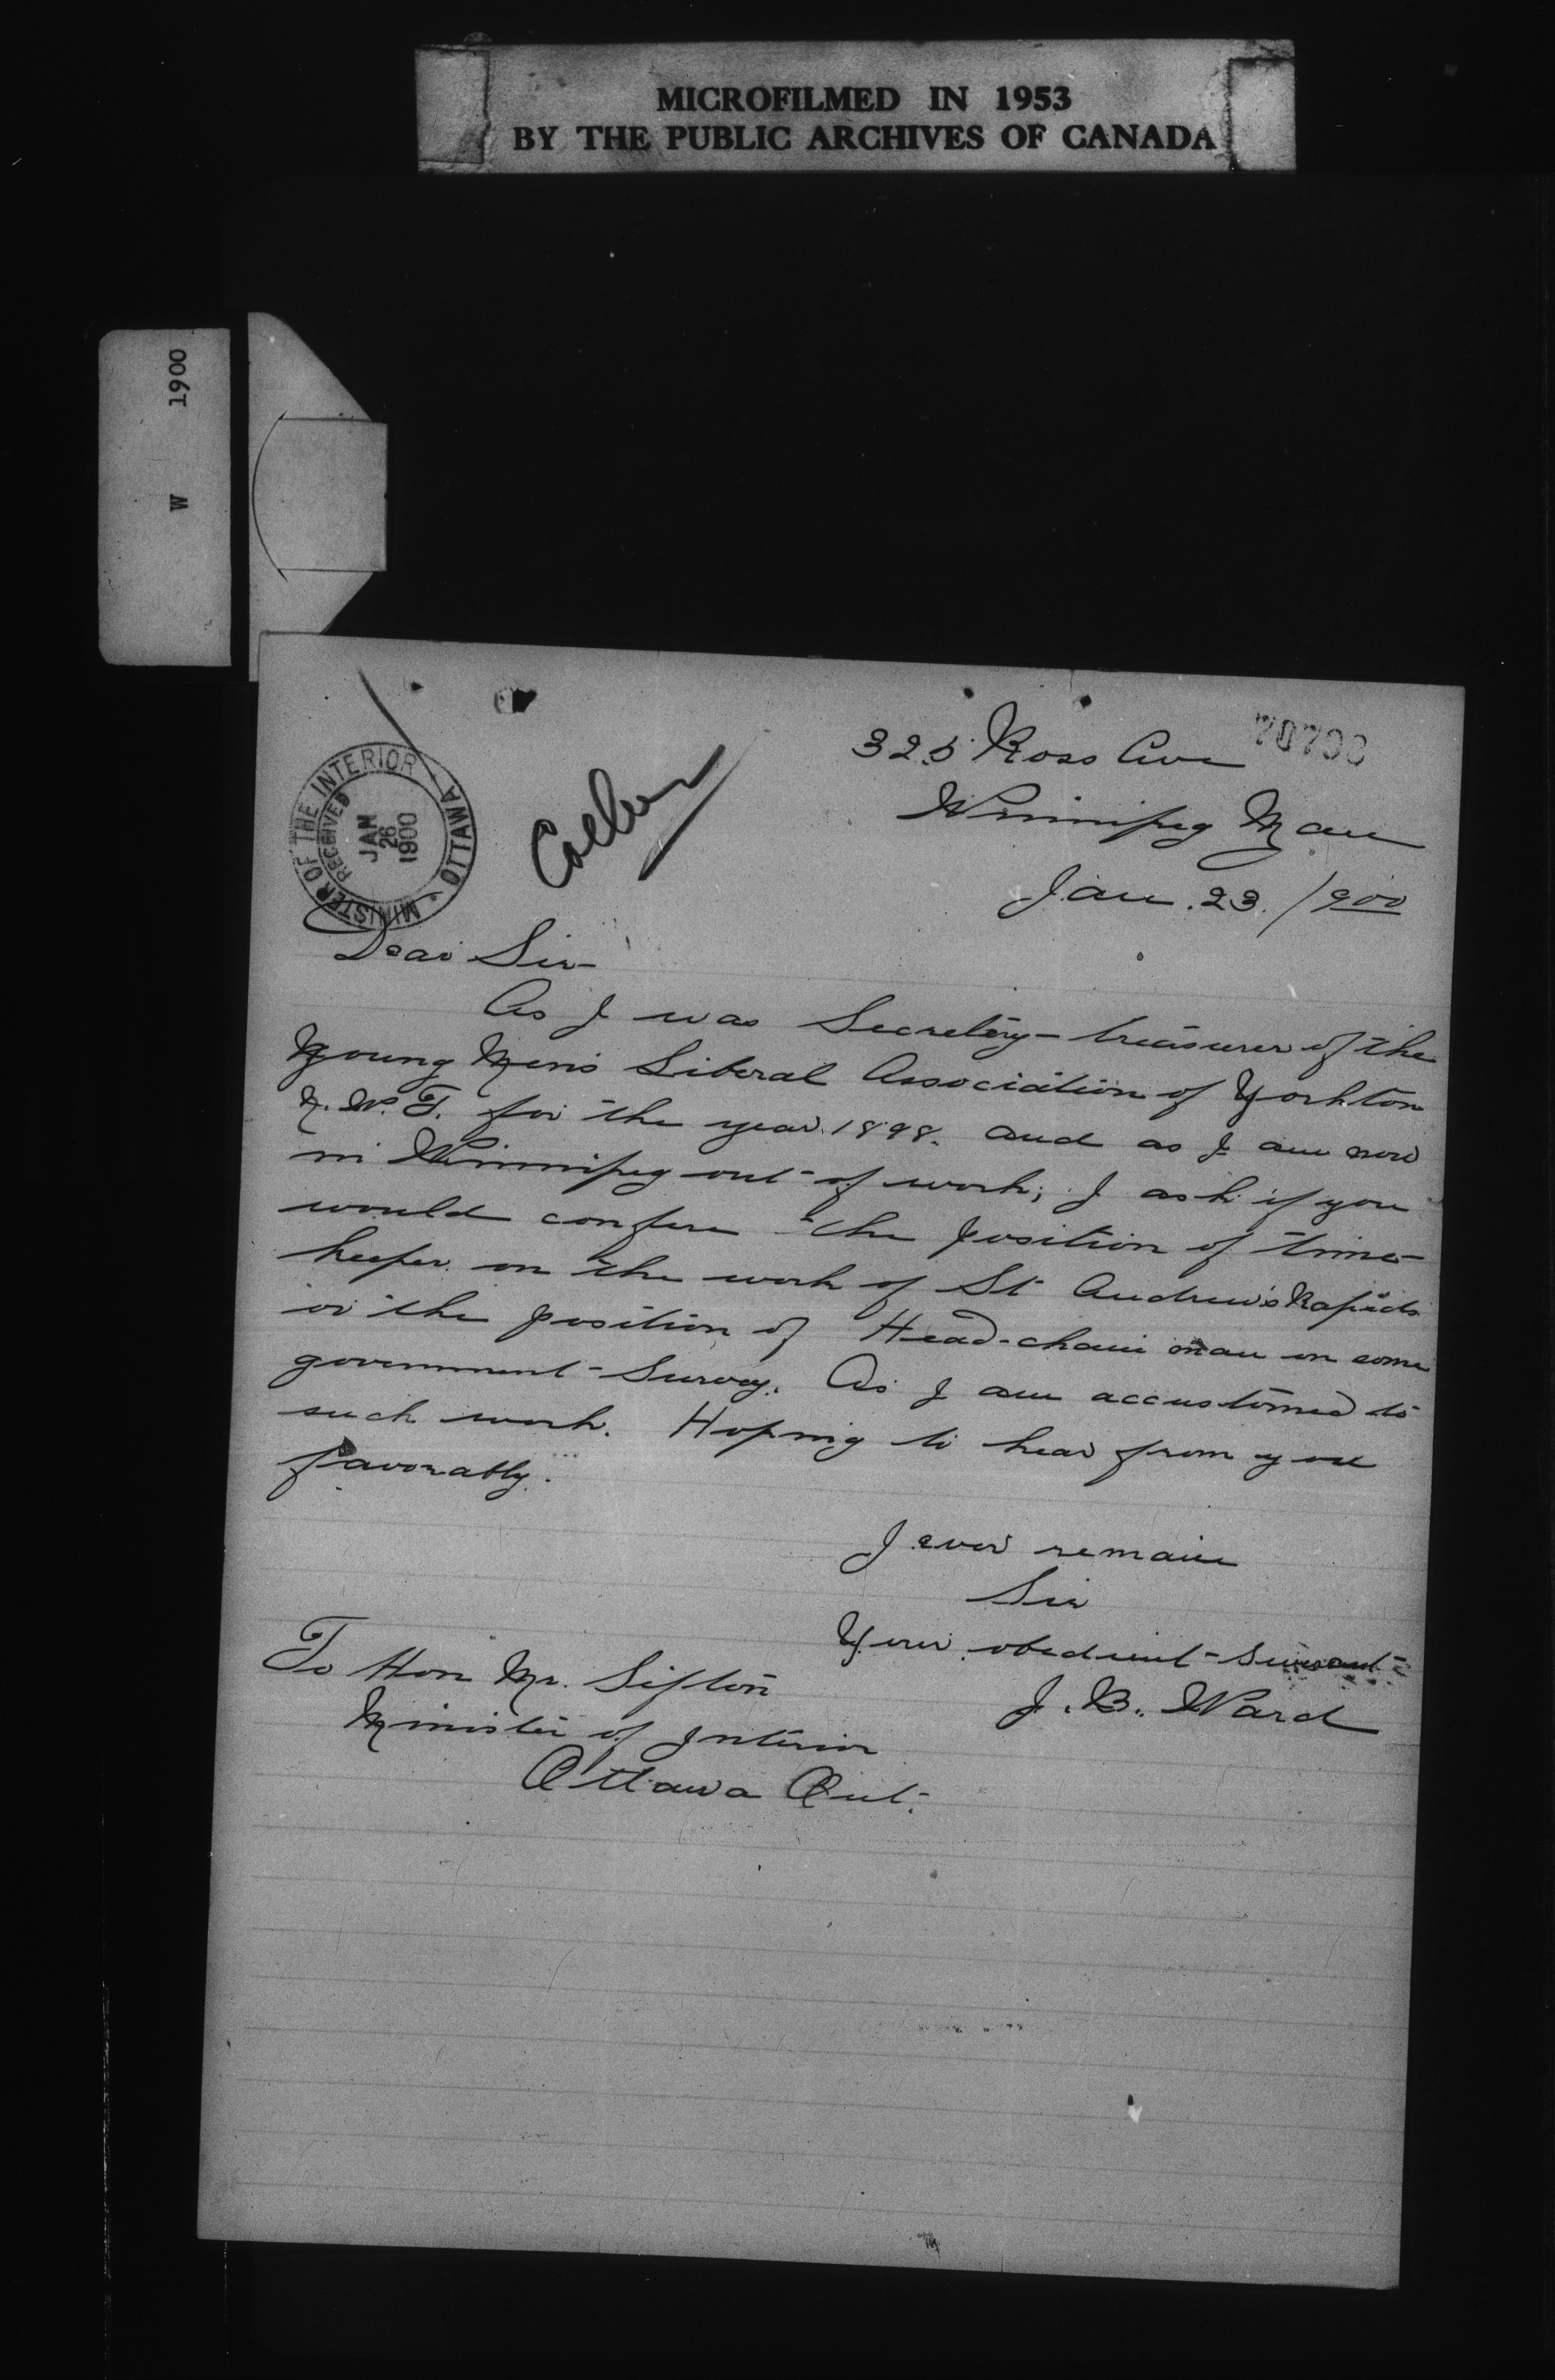 MICROFILMED IN 1953
BY THE PUBLIC ARCHIVES OF CANADA
W 1900
MINISTER OF THE INTERIOR OTTAWA
RECEIVED
JAN
26
1900
325 Ross Ave
Winnipeg Man
Jan. 23. /900
Dear Sir
As I was Secretery-treasurer of the
Young Men's Liberal Association of Yorkton
N.W.T. for the year 1898. and as I am now
in Winnipeg out of work; I ask if you
would confere the position of time-
keeper on the work of St Andrew's Rapids
or the position of Head-chain man on some
government Survey. As I am accustomed to
such work. Hoping to hear from you
favorably.
I ever remain
Sir
Your obedient servant
J. B. Ward
To Hon Mr. Sifton
Minister of Interior
Ottawa Ont.